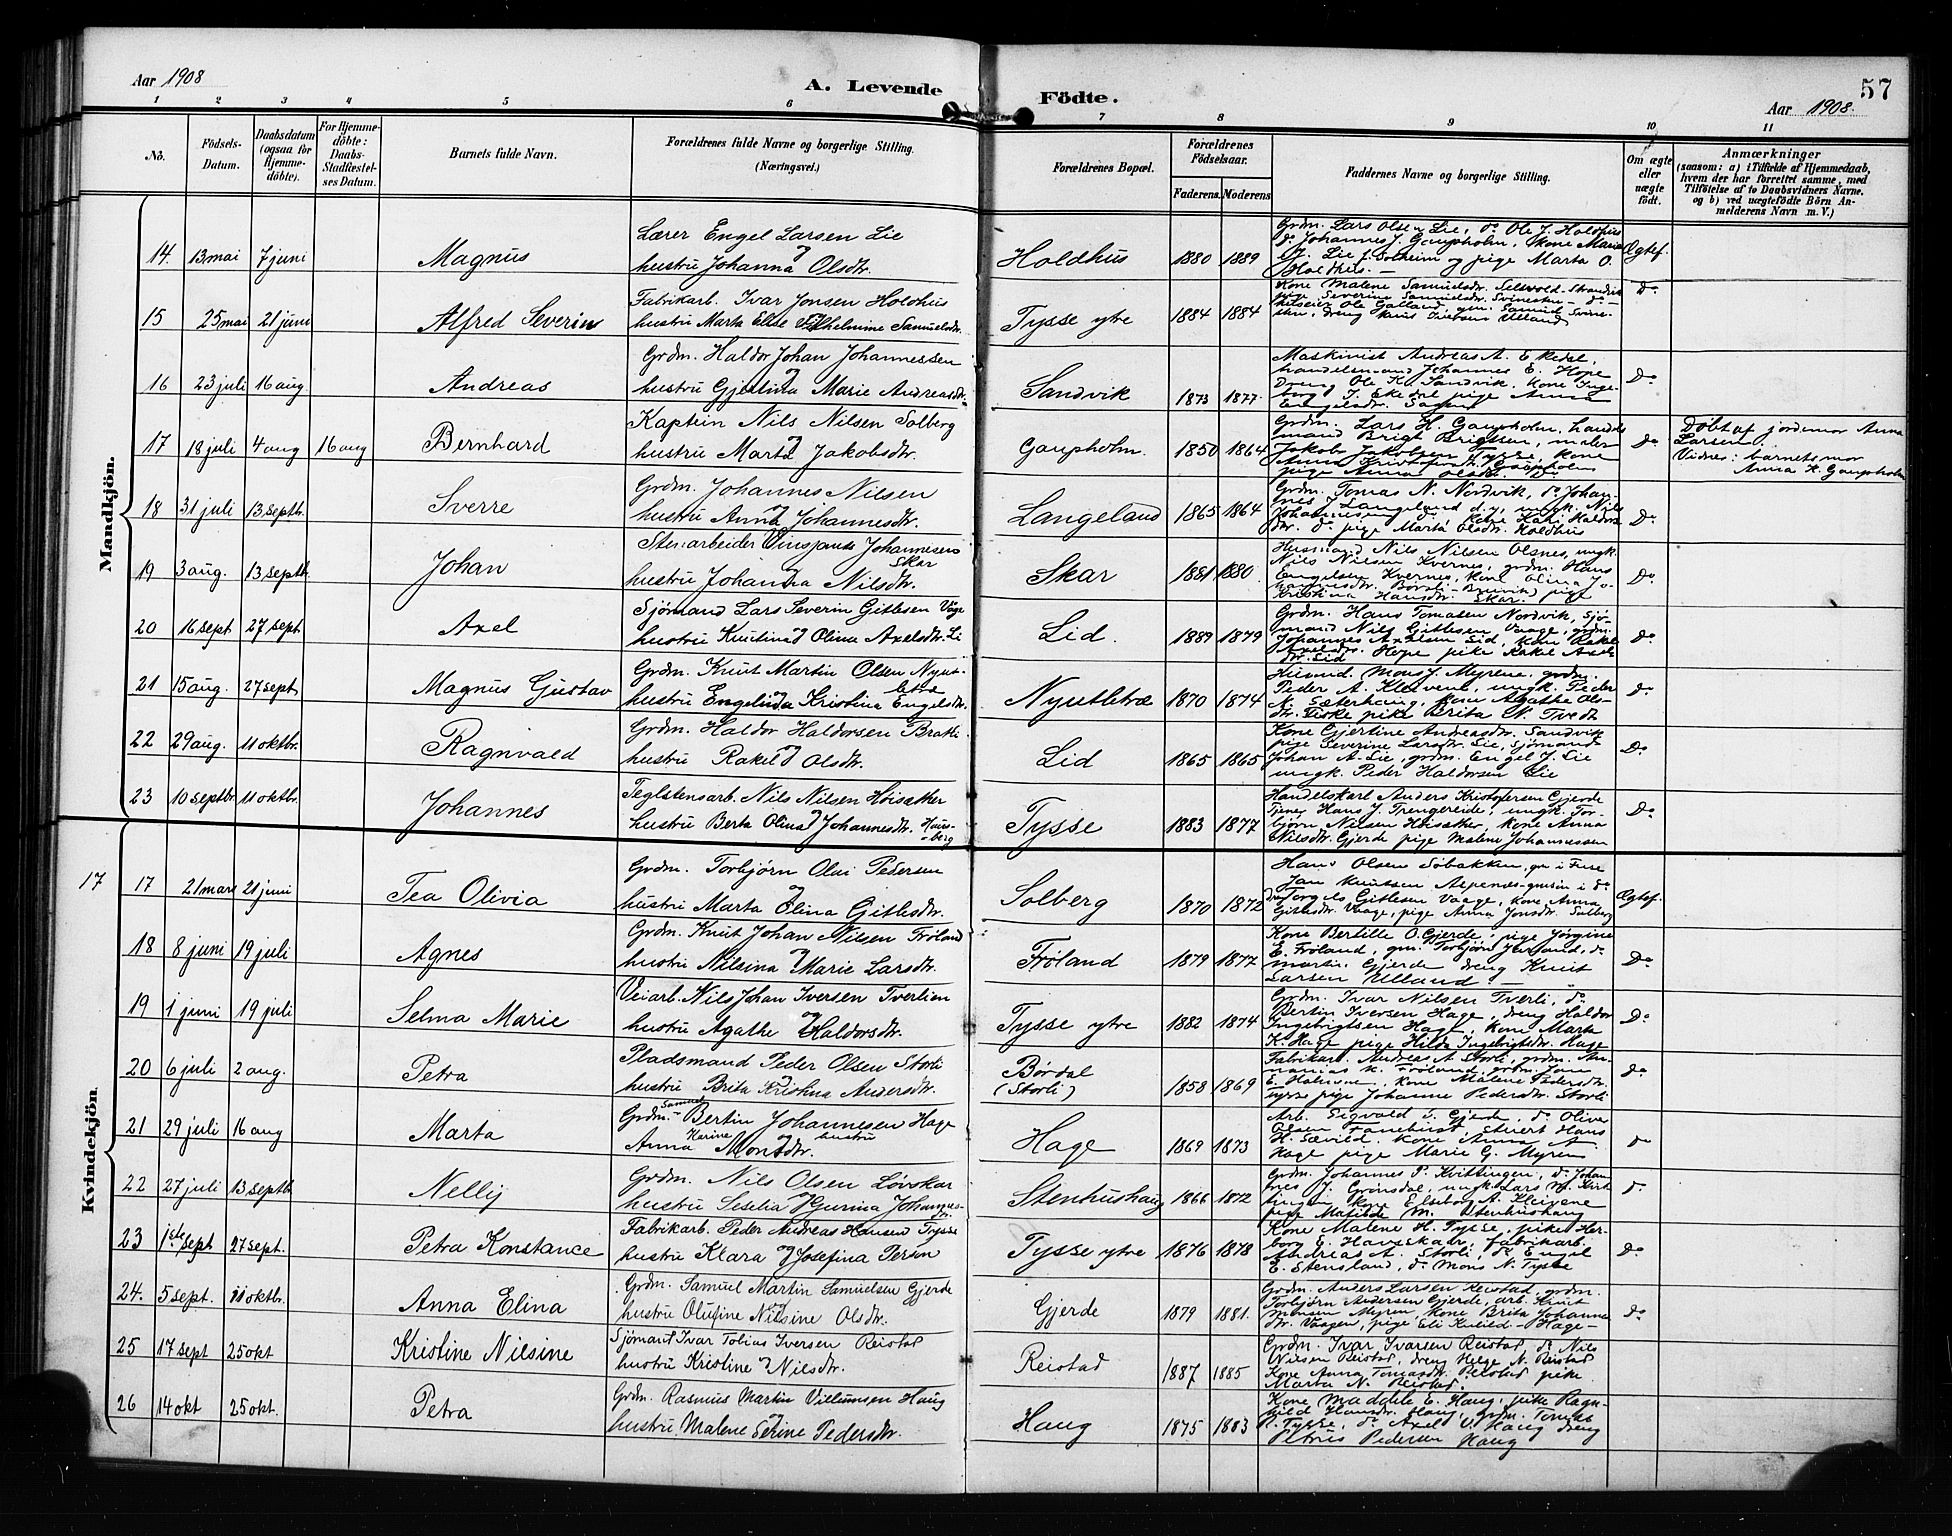 Aar 1908
A. Levende
Födte.
57
Aar 1908.
1 2 3 4 5 6 7 8 9 10 11
No.
Födsels-Datum.
Daabsdatum (ogsaa for Hjemme-döbte).
For Hjemme-döbte: Daabs-Stadfæstel-ses Datum.
Barnets fulde Navn.
Forældrenes fulde Navne og borgerlige Stilling. (Næringsvei.)
Forældrenes Bopæl.
Forældrenes Födselsaar.
Faderens. Moderens
Faddernes Navne og borgerlige Stilling.
Om ægte eller uægte födt.
Anmærkninger
(saasom: a) i Tilfælde af Hjemmedaab, hvem der har forrettet samme, med Tilföielse af to Daabsvidners Navne, og b) ved uægtefödte Börn An-melderens Navn m. V.)
Mandkjön.
14. 13 mai 7 juni Magnus
Lærer Engel Larsen Lie
hustru Johanna Olsdtr.
Holdhus 1880 1889
Grdm. Lars Olsen Lie, do Ole J. Holdhus
do Johannes J. Gaupholm, Kone Maria
J. Lie f. Solheim og pige Marta O.
Holdhus. —
Ægtef.
15 25 mai 21 juni Alfred Severin
Fabrikarb. Ivar Jonsen Holdhus
hustru Marta Elise Vilhelmine Samuelsdtr.
Tysse ytre 1884 1884
Kone Malene Samuelsdtr.
Do
16 23 juli 16 aug. Andreas
Grdm. Haldor Johan Johannessen
hustru Gjertina Marie Andreasdtr.
Sandvik 1873 1877
Maskinist Andreas A. Ekedal,
handelsmand Johannes E. Hope
Dreng Ole K. Sandvik, Kone Inge-
Do
17 18 juli 4 aug 16 aug Bernhard
Kaptein Nils Nilsen Solberg
hustru Marta Jakobsdtr.
Gaupholm. 1850 1864
Grdm. Lars H. Gaupholm, handels
mand Brigt Brigtsen, maler
Jakob Jakobsen Tysse, kone
Do
Döbt af jordemor Anna
Larsen
Vidnes: barnets mor
Anna K. Gaupholm
18 31 juli 13 septb. Sverre
Grdm. Johannes Nilsen
hustru Anna Johannesdtr.
Langeland 1865 1864
Grdm. Tomas N. Nordvik, do Johan-
nes J. Langeland d.y., ungk. Nils
dtr. do pige Marta Olsdtr. Holdhus
Do
19 3 aug. 13 septb. Johan
Stenarbeider Vinsjants Johannesen
Skar
hustru Johanna Nilsdtr.
Skar 1881 1880
Husmand Nils Nilsen Olsnes, ungk.
Nils Nilsen Kvernes, grdm. Hans
Engelsen Kvernes, kone Olina Jo-
Kristina Hansdtr. Skar.
Do
20 16 sept 27 sept Axel
Sjömand Lars Severin Gitlesen Våge
hustru Knutina Olina Axelsdtr. Li
Lid. 1889 1879
Grdm. Hans Tomasen Nordvik, Sjö-
mand Nils Gitlesen Vaage, grdm.
Johannes Axelsen Lid, kone Rakel
Axelsdtr. Hope pike Rakel Axels-
dtr. Lid
Do
21 15 aug. 27 sept Magnus Gustav
Grdm. Knut Martin Olsen Nyut-
letræ
hustru Engelinda Kristina Engelsdtr.
Nyutletræ 1870 1874
Husmd. Mons J. Myrene, grdm.
Peder A. Kleivene, ungk. Peder
A. Sæterhaug, Kone Agathe Ols-
dtr. Fiske pike Brita N. Tvedt
Do
22 29 aug. 11 oktbr. Ragnvald
Grdm. Haldor Haldorsen Bratli.
hustru Rakel Olsdtr.
Lid 1865 1865
Kone Gjertine Andreasdtr. Sandvik
pige Severine Larsdtr. Lie, Sjömand
Johan A. Lie, grdm. Engel J. Lie
ungk. Peder Haldorsen Lie
Do
23 10 septbr. 11 oktbr. Johannes
Teglstensarb. Nils Nilsen Höisæther
hustru Berta Olina Johannesdtr. Haus-
berg
Tysse 1883 1877
Handelskarl Anders Kristofersen Gjerde
Tjener Hans J. Trengereide, ungk. Tor-
björn Nilsen Höisæter, kone Anna
Nilsdtr. Gjerde pige Malene Johannessen
Do
Kvindekjön
17
17 21 mars 21 juni Tea Olivia
Grdm. Torbjörn Olai Pedersen
hustru Marta Olina Gitlesdtr.
Solberg 1870 1872
Hans Olsen Söbakken, gm i Fuse
Jan Knutsen Alpenes-gmsön i do
Torgils Gitlesen Vaage, kone Anna
Gitlesdtr. Vaage, pige Anna Jonsdtr. Solberg
Ægtef.
18 8 juni 19 juli Agnes
Grdm. Knut Johan Nilsen Fröland
hustru Nilsina Marie Larsdtr.
Fröland 1879 1877
Kone Bertille O. Gjerde, pige Jörgine
E. Fröland, gm. Torbjörn
martin Gjerde dreng Knut
Larsen Ulland. —
Do
19 1 juni 19 juli Selma Marie
Veiarb. Nils Johan Iversen Tverlien
hustru Agathe Haldorsdtr.
Tysse ytre 1882 1874
Grdm. Ivar Nilsen Tverli, do
Bertin Iversen Hage, dreng Haldor
Ingebrigtsen Hage, kone Marta
K. Hage pige Hilda Ingebrigtsdtr. Hage
Do
20 6 juli 2 aug. Petra
Pladsmand Peder Olsen Storli
hustru Brita Kristina Andersdtr.
Bördal
(Storli)
1858 1869
Fabrikarb. Andreas A. Storli, grdm. An-
nanias K. Fröland, grdm. Jan
kone Malene Pedersdtr.
Tysse pige Johanne Pedersdtr. Storli
do
21 29 juli 16 aug Marta
Grdm. Samuel Bertin Johannesen Hage
Anna Karine Monsdtr. hustru
Hage 1869 1873
Arb. Sigvald S. Gjerde, do Oliver
Olsen Tanehurst Stuert Hans
H. Sævild. Kone Anna A
Hage pige Marie G. Myren
do
22 27 juli 13 septb. Nellij
Grdm. Nils Olsen Lövskar
hustru Seselia Gurina Johannes-
dtr.
Stenhushaug 1866 1872
Grdm. Johannes P. Kvittingen, do Johan
nes J. Grönsdal, ungk. Lars M. Kvit
tingen kone Elseborg A. Kleivane
pige Matilde M. Stenhushaug
do
23 1ste sept 27 sept. Petra Konstance
Fabrikarb. Peder Andreas Hansen Tysse
hustru Klara Josefina Persin
Tysse ytre 1876 1878
Kone Malene H. Tysse, pike Her-
borg E. Haveskaar, fabrikarb.
Andreas A. Storli, do Engel
E. Stensland, do Mons N. Tysse
Do
24. 5 sept. 11 oktbr. Anna Elina
Grdm. Samuel Martin Samuelsen Gjerde
hustru Olufine Nilsine Olsdtr.
Gjerde 1879 1881.
Grdm. Anders Larsen Reistad, grdm.
Torbjörn Andersen Gjerde, arb. Knut
Monsen Myren, kone Brita Johanne
dtr. Vaagen, pige Eli Hage
do
25 17 sept 25 okt Kristine Nilsine
Sjömand Ivar Tobias Iversen Reistad
hustru Kristine Nilsdtr.
Reistad 1887 1885
Grdm. Ivar Ivarsen Reistad, do Nils
Nilsen Reistad, dreng Helge N. Reistad
Kone Anna Tomasdtr. Reistad pike
Marta N. Reistad.
26 14 okt 25 okt. Petra
Grdm. Rasmus Martin Villumsen Haug
hustru Malene Serine Pedersdtr.
Haug 1875 1883
Kone Maddele E. Haug, pike Ragn-
hild Hansdtr. Haug, grdm. Tomas
P. Tysse, do Axel V. Haug dreng
Petrus Pedersen Haug